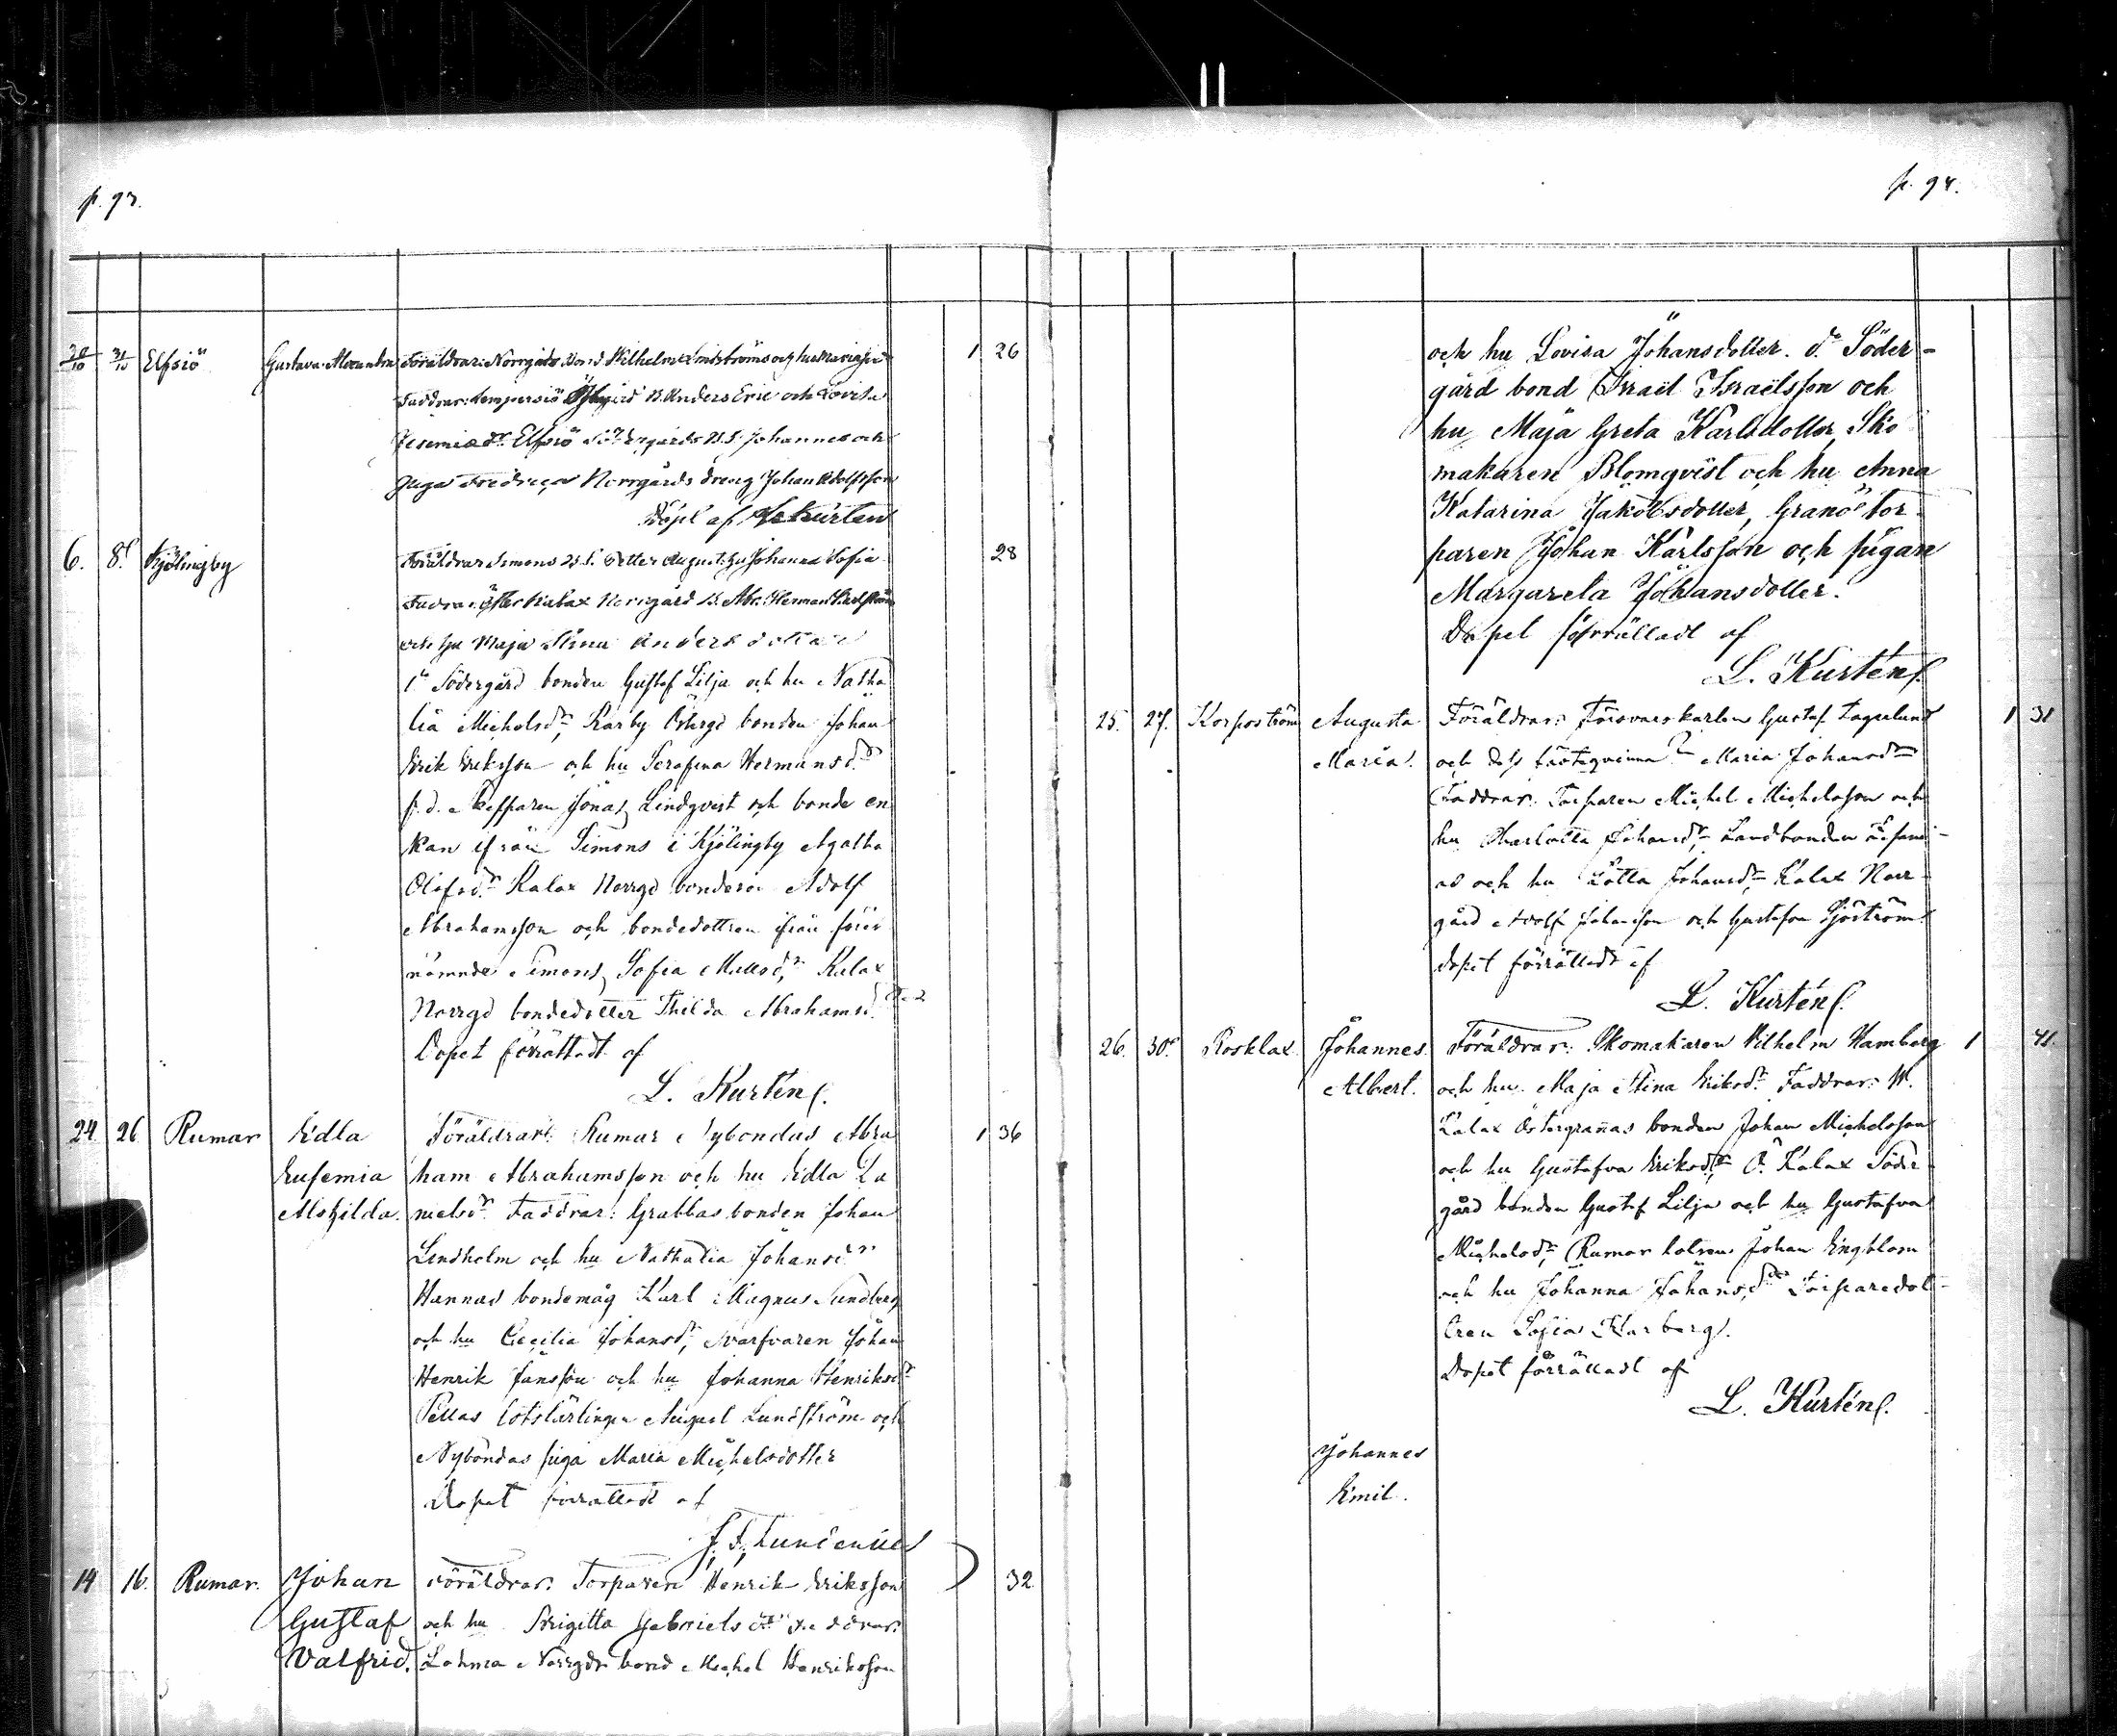 p. 93.
30/10 31/10 Elfsiö Gustava Alexandra Föräldrar: Norrgårds bond Wilhelm Lindströms och hu Maria
1 26
Faddrar: Kempersiö B. Anders Eric och Lovisa
Elfsiö Södergårds B.S. Johannes och
Fredrica Norrgårds dreng Johan Adolfsson
Döpt af Kurten
6. 8. Kjölingby Föräldrar Simons B.S. Petter August hu Johanna Sofia
28
Öster Kalax Norrgård B. Abr. Herman
och hu Maja Stina Anders dotter
Södergård bonden Gustaf Lilja och hu Natha
lia Michelsdr, Karby Östergd bonden Johan
Erik Eriksson och hu Serafina Hermansdr
f.d. Jonas Lindqvist och bonde en
kan ifrån Simons i Kjölingby Agatha
Olofsdr Kalax Norrgd bondeson Adolf
Abrahamsson och bondedottren ifrån förr
nämnde Simons, Sofia Mattsdr, Kalax
Norrgd bondedotter Thilda Abrahamsd.
Dopet förrättadt af
L. Kurtén.
24 26 Rumar Edla Föräldrar: Rumar Nybondas Abra
1 36
Eufemia ham Abrahamsson och hu Edla Da
Mathilda. nielsdr. Faddrar: Grabbas bonden Johan
Lindholm och hu Nathalia Johansdr
Hannas bondemåg Karl Magnus Sundberg
och hu Cecilia Johansdr, Svarfvaren Johan
Henrik Jansson och hu Johanna Henriksdr
Pellas lotslärlingen August Lundström och
Nybondas piga Maria Michelsdotter
Dopet förrättadt af
J. F. Lundenius
14 16. Rumar. Johan Föräldrar: Torparen Henrik Eriksson
32
Gustaf och hu Brigitta Gabrielsdr Faddrar:
Valfrid. Lohma Norrgds bond Michel Henriksson
p. 94.
och hu Lovisa Johansdotter. do Söder-
gård bond Israel Israelsson och
hu Maja Greta Karlsdotter, Sko
makaren Blomqvist och hu Anna
Katarina Jakobsdotter, Granö tor-
paren Johan Karlsson och pigan
Margareta Johansdotter.
Dopet förrättadt af
L. Kurtén.
25. 27. Korpoström Augusta Föräldrar: Försvarskarlen Gustaf Lagerlund
1 31
Maria. och dess fästeqvinna Maria Johansdr
Faddrar: Torparen Michel Michelsson och
hu Charlotta Johansdr, Landbonden
as och hu Lotta Johansdr, Kalax Norr-
gård Adolf Johansson och Gustafva Sjöström
Dopet förrättadt af
L. Kurtén.
26. 30. Rosklax Johannes Föräldrar: Skomakaren Vilhelm Hamberg
1 41
Albert. och hu Maja Stina Eriksdr Faddrar: W.
Kalax Östergrannas bonden Johan Michelsson
och hu Gustafva Eriksdr Ö. Kalax Söder
gård bonden Gustaf Lilja och hu Gustafva
Michelsdr, Rumar lotsen Johan Engblom
och hu Johanna Johansdr Torparedot-
tren Sofia Karberg.
Dopet förrättadt af
L. Kurtén.
Johannes
Emil.